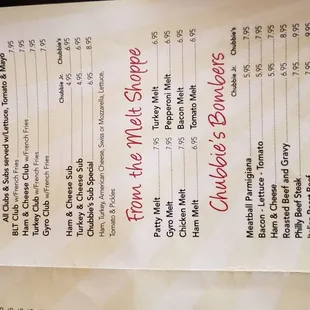 All Clubs & Subs served w/Lettuce, Tomato & Mayo
BLT Club w/French Fries 7.95
Ham & Cheese Club w/French Fries 7.95
Turkey Club w/French Fries 7.95
Gyro Club w/French Fries 7.95
Chubbie Jr. Chubbie's
Ham & Cheese Sub 4.95 6.95
Turkey & Cheese Sub 4.95 6.95
Chubbie's Sub Special 6.95 8.95
Ham, Turkey, American Cheese, Swiss or Mozzarella, Lettuce,
Tomato & Pickles
From the Melt Shoppe
Patty Melt 7.95 Turkey Melt 6.95
Gyro Melt 7.95 Pepperoni Melt 6.95
Chicken Melt 7.95 Bacon Melt 7.95
Ham Melt 6.95 Tomato Melt 6.95
Chubbie's Bombers
Chubbie Jr. Chubbie's
Meatball Parmigiana 5.95 7.95
Bacon - Lettuce - Tomato 5.95 7.95
Ham & Cheese 5.95 7.95
Roasted Beef and Gravy 6.95 8.95
Philly Beef Steak 7.95 9.95